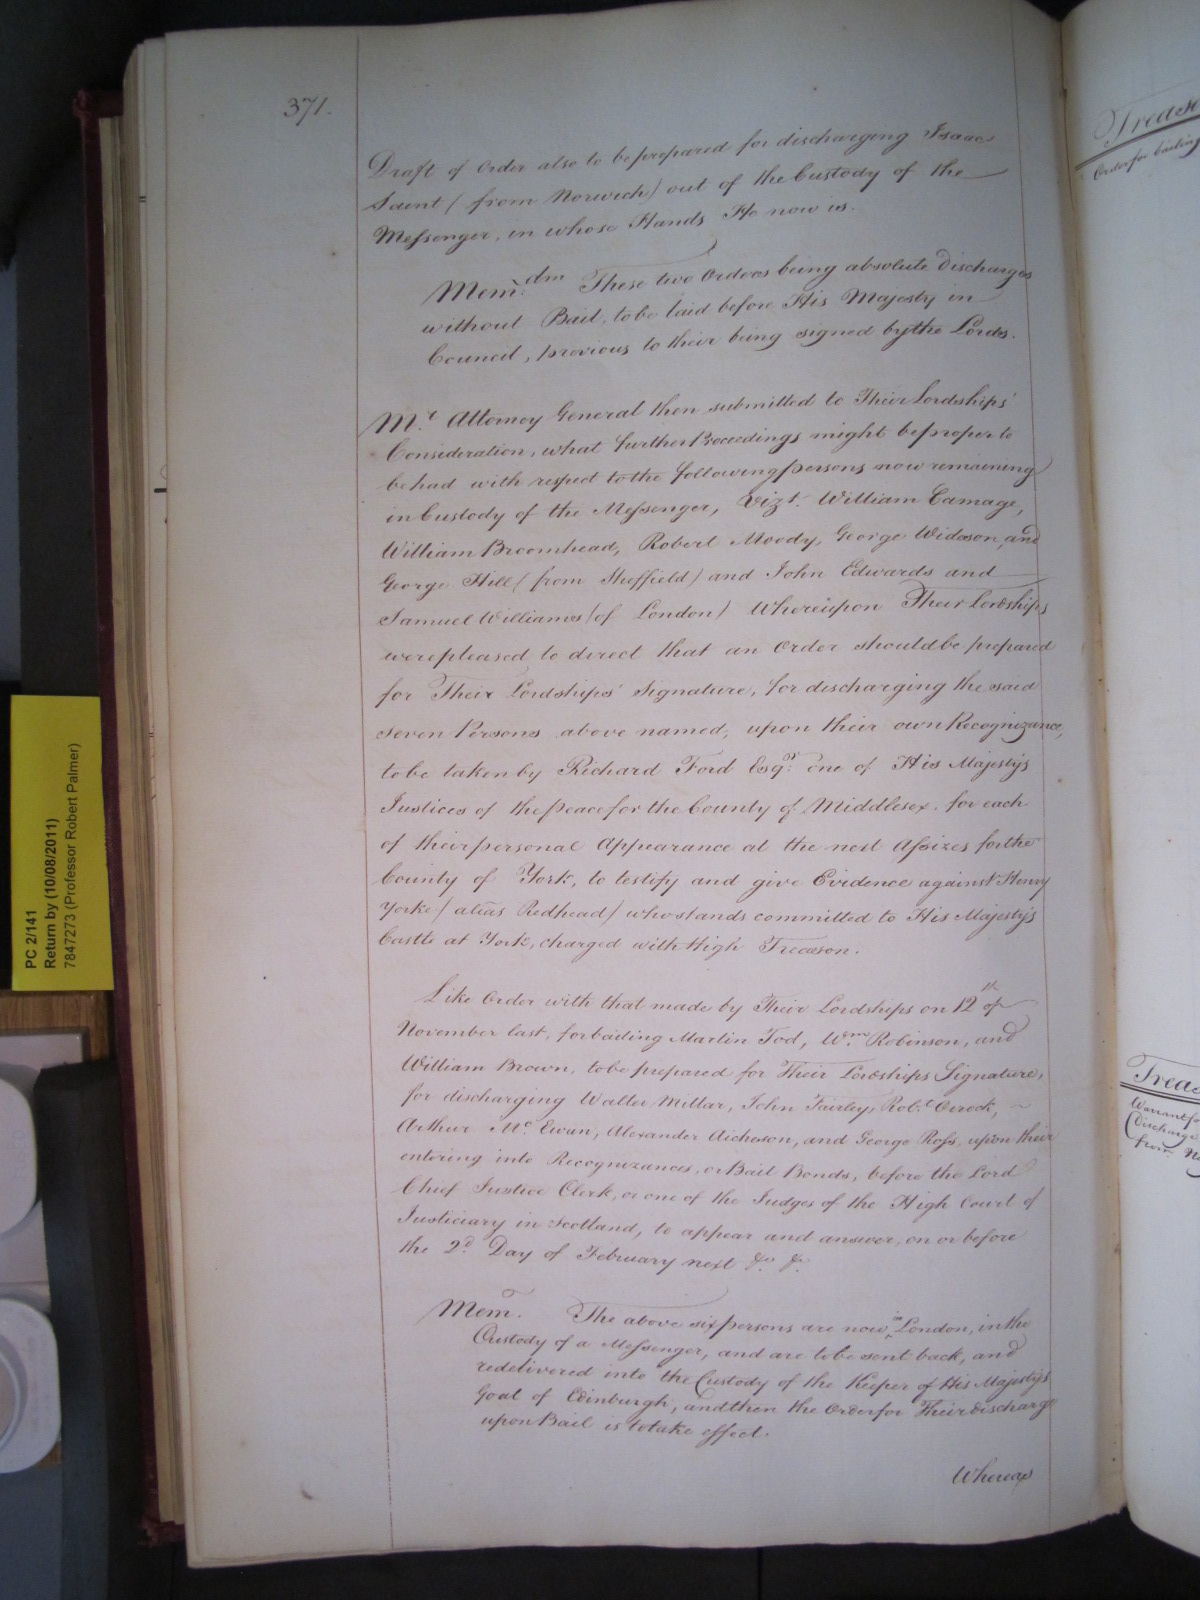 371.
Draft of Order also to be prepared for discharging Isaac
Saint (from Norwich) out of the Custody of the
Messenger, in whose Hands He now is.
Mem:dm These two Orders being absolute discharges
without Bail, to be laid before His Majesty in
Council, previous to their being signed by the Lords.
Mr. Attorney General then submitted to Their Lordships'
Consideration, what further Proceedings might be proper to
be had with respect to the following persons now remaining
in Custody of the Messenger, Vizt. William Camage,
William Broomhead, Robert Moody, George Widdson, and
George Hill (from Sheffield) and John Edwards and
Samuel Williams (of London) Whereupon Their Lordships
were pleased to direct that an Order should be prepared
for Their Lordships' Signature, for discharging the said
seven Persons above named, upon their own Recognizance,
to be taken by Richard Ford Esqr. one of His Majesty's
Justices of the peace for the County of Middlesex. for each
of their personal Appearance at the next Assizes for the
County of York, to testify and give Evidence against Henry
Yorke (alias Redhead) who stands committed to His Majesty's
Castle at York, charged with High Treason.
Like Order with that made by Their Lordships on 12th of
November last, for bailing Martin Tod, Wm. Robinson, and
William Brown, to be prepared for Their Lordships Signature,
for discharging Walter Millar, John Fairley, Robt. Orrock,
Arthur Mc. Ewan, Alexander Aicheson, and George Ross, upon their
entering into Recognizances, or Bail Bonds, before the Lord
Chief Justice Clerk, or one of the Judges of the High Court of
Justiciary in Scotland, to appear and answer, on or before
the 2d. Day of February next &c. &c.
Mem. The above six persons are now in London, in the
Custody of a Messenger, and are to be sent back, and
redelivered into the Custody of the Keeper of His Majesty's
Goal of Edinburgh, and then the Order for Their discharge
upon Bail is to take effect.
Whereas
PC 2/141
Return by (10/08/2011)
7847273 (Professor Robert Palmer)
Order for bailing
Discharge
from